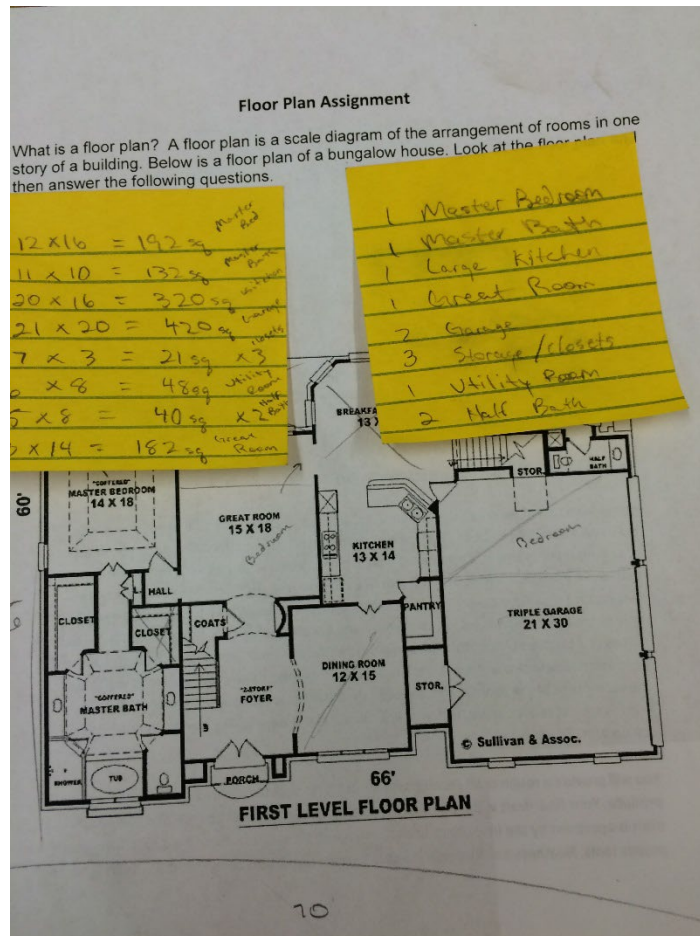 Floor Plan Assignment
What is a floor plan? A floor plan is a scale diagram of the arrangement of rooms in one
story of a building. Below is a floor plan of a bungalow house. Look at the floor
then answer the following questions.
12 x 16 = 192 sq Master Bed
11 x 10 = 132 sq Master Bath
20 x 16 = 320 sq Kitchen
21 x 20 = 420 sq Garage
7 x 3 = 21 sq x3 closets
x 8 = 48 sq Utility Room
5 x 8 = 40 sq x2 Half Bath
x 14 = 182 sq Great Room
1 Master Bedroom
1 Master Bath
1 Large Kitchen
1 Great Room
2 Garage
3 Storage/closets
1 Utility Room
2 Half Bath
60'
"COFFERED"
MASTER BEDROOM
14 X 18
GREAT ROOM
15 X 18
Bedroom
13
KITCHEN
13 X 14
STOR.
HALF
BATH
Bedroom
TRIPLE GARAGE
21 X 30
L.
HALL
CLOSET
CLOSET
COATS
PANTRY
DINING ROOM
12 X 15
STOR.
"COFFERED"
MASTER BATH
"2-STORY"
FOYER
SHOWER
TUB
PORCH
© Sullivan & Assoc.
66'
FIRST LEVEL FLOOR PLAN
10